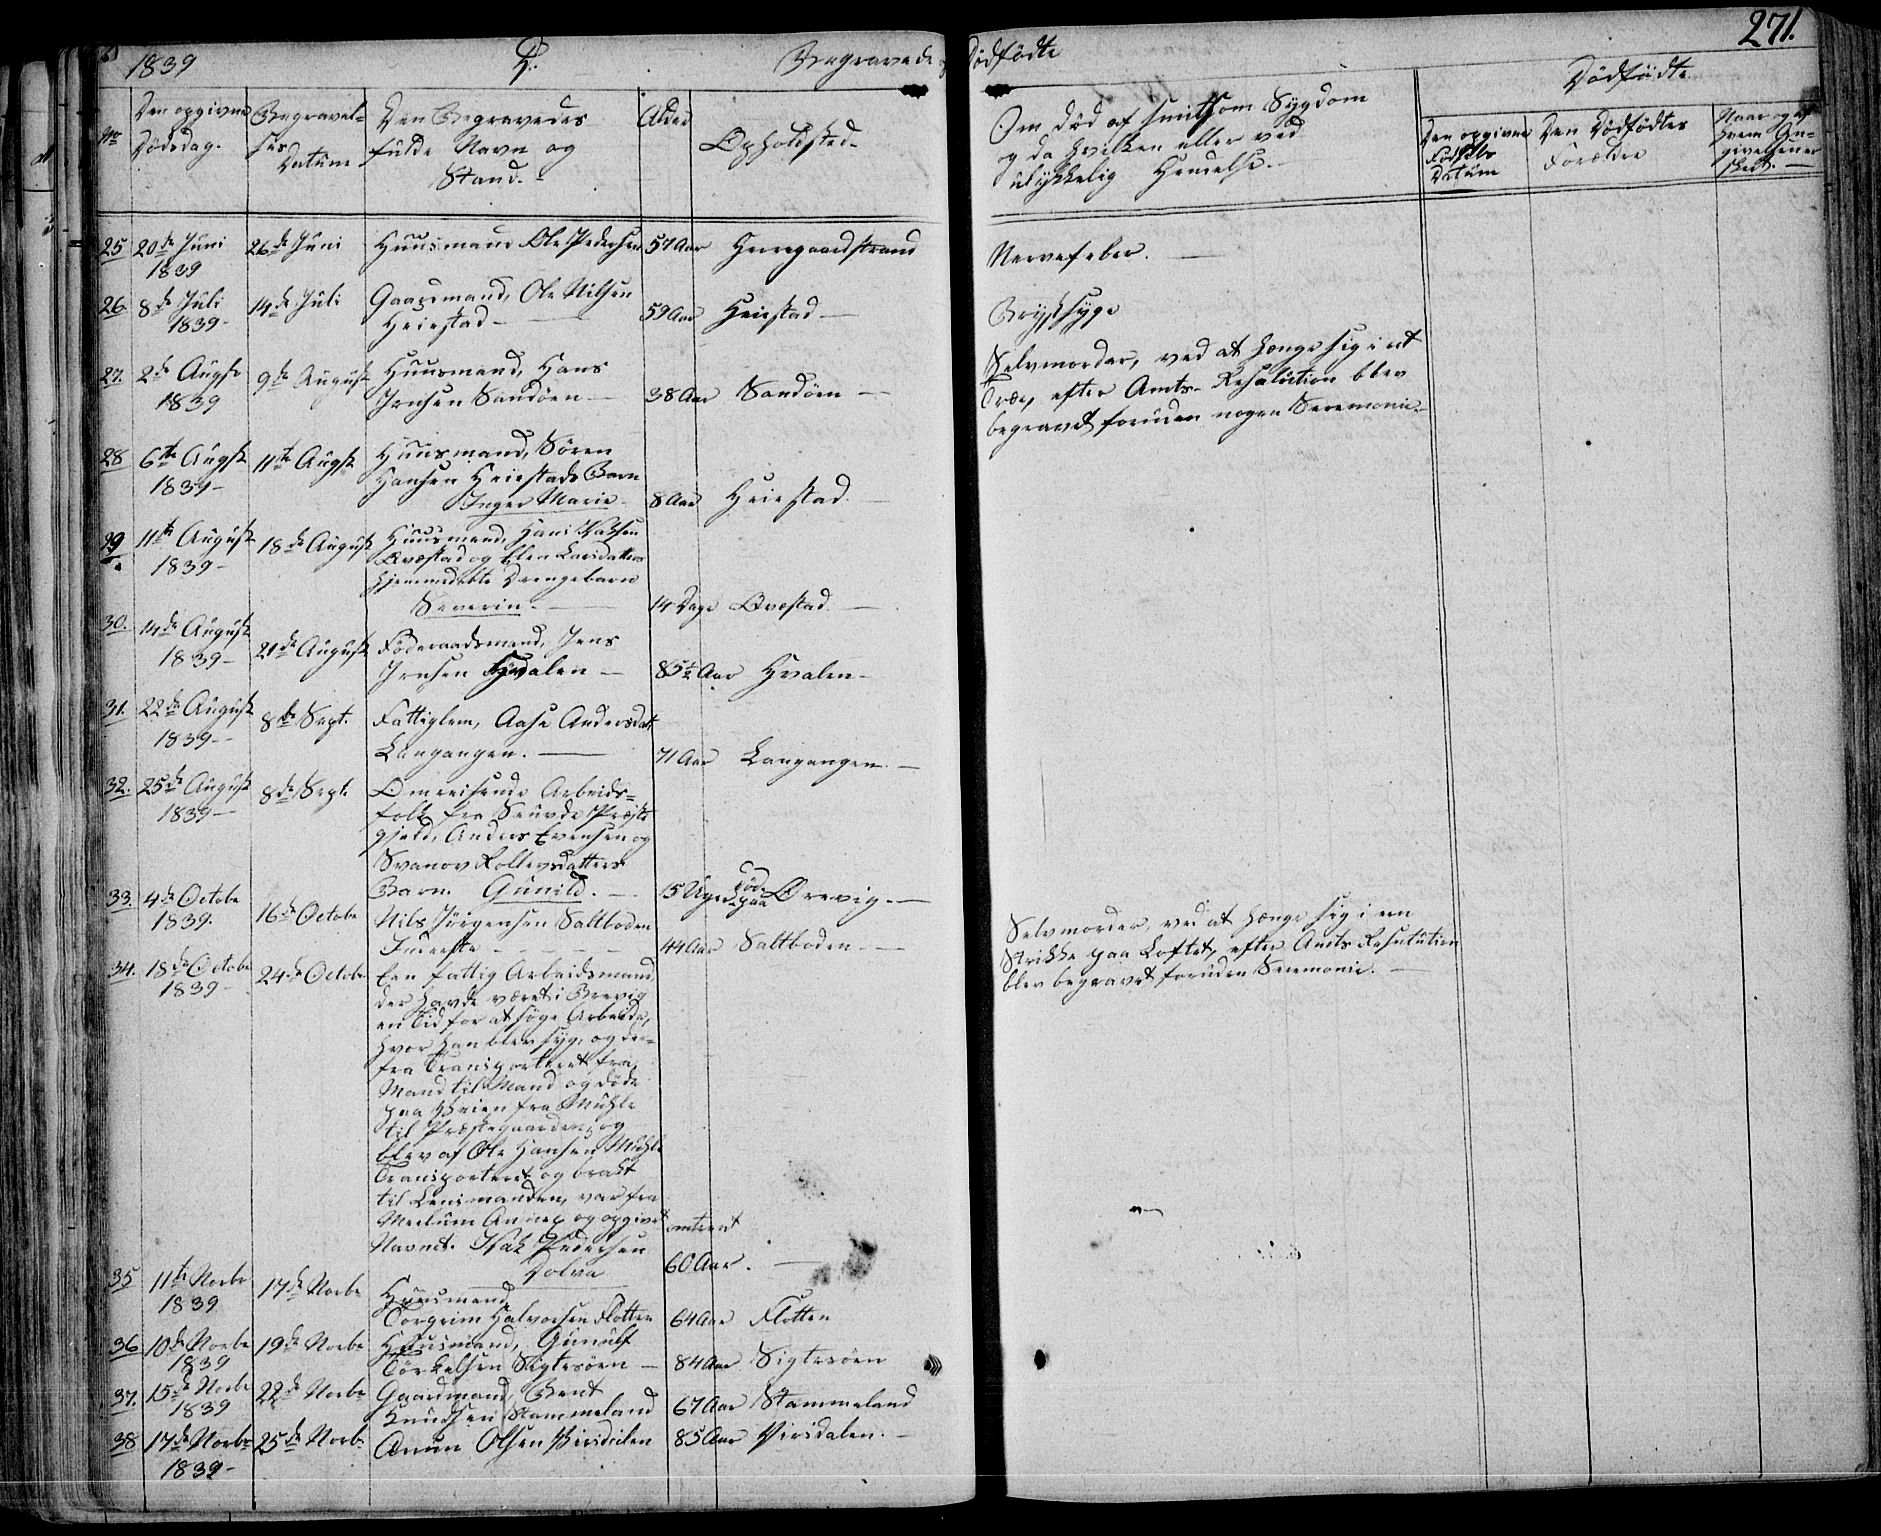 1839 D: Begravede og Dödfödte 271.
Dödfödte
No
Den opgivne Dödsdag.
Begravelses Datum
Den Begravedes fulde Navn og Stand.
Alder
Opholdsted.
Om död af smitsom Sygdom og da hvilken eller ved ulykkelig Hendelse.
Den opgivne Födsels Datum
Den Dödfödtes Forældre
Naar og af hvem Angivelsen er skeet.
25 20de Juni 26de Juni Huusmand Ole Pedersen 57 Aar Herregaardstrand Nervefeber.
1839
26. 8de Juli 14de Juli Gaardmand, Ole Nilsen
1839- Heiestad- 59 Aar Heiestad- Brystsyge
27. 2de Augst 9de August Huusmand, Hans
1839 Jensen Sandöen- 38 Aar Sandöen-
Selvmorder, ved at hænge sig i et
Træe, efter Amts-Resolution blev
begravet foruden nogen Seremonie-
28 6te Augst 11te Augst Huusmand, Sören
1839- Hansen Heiestads Barn
Inger Marie- 8 Aar Heiestad.
29 11te August 18de August Huusmand, Hans
1839- Øvestad og Elen Larsdatters
hjemmedöbte Drengebarn
Severin- 14 Dage Øvestad
30. 14de August 21de August Föderaadsmand, Jens
1839- Jensen Hvalen- 85½ Aar Hvalen-
31. 22de August 8de Sept. Fattiglem, Aase Andersdat.
1839- Langangen. 71 Aar Langangen-
32. 25de August 8de Sept. Omreisende Arbeids=
1839- folk fra Præste
gjeld, Anders Evensen og
Svanov Rollevsdatters
Barn. Gunild.- 15 Uger döde paa Ørevig.-
33. 4de Octobr 16de Octobr Nils Jörgensen Saltboden
1839. Inderste- 44 Aar Saltboden-
Selvmorder, ved at hænge sig i een
Strikke paa Loftet, efter Amts Resulution
blev begravet foruden Seremonie.-
34. 18de Octobr 24de Octobr Een fattig Arbeidsmand
1839- der havde været i Brevig
en Tid for at söge Arbeide,
hvor han blev syg, og der=
fra Transporteret fra
Mand til Mand og döde
paa Veien fra Mühle
til Præstegaarden, og
blev af Ole Hansen Mühle
Transporteret og bragt
til Lensmanden, var fra
Melum Annex og opgivet omtrent
Navnet. Isak Pedersen
Dolva 60 Aar.
35 11te Novbr 17de Novbr Huusmand,
1839 Torgrim Halvorsen Flotten 64 Aar Flotten
36 10de Novbr 19de Novbr Huusmand, Gunulf
1839 Torkelsen Sigtesöen- 84 Aar Sigtesöen
37. 15de Novbr 22de Novbr Gaardmand, Bent
1839 Knudsen Stammeland 67 Aar Stammeland
38 17de Novbr 25de Novbr Olsen Versdalen 85 Aar Versdalen.-
1839-